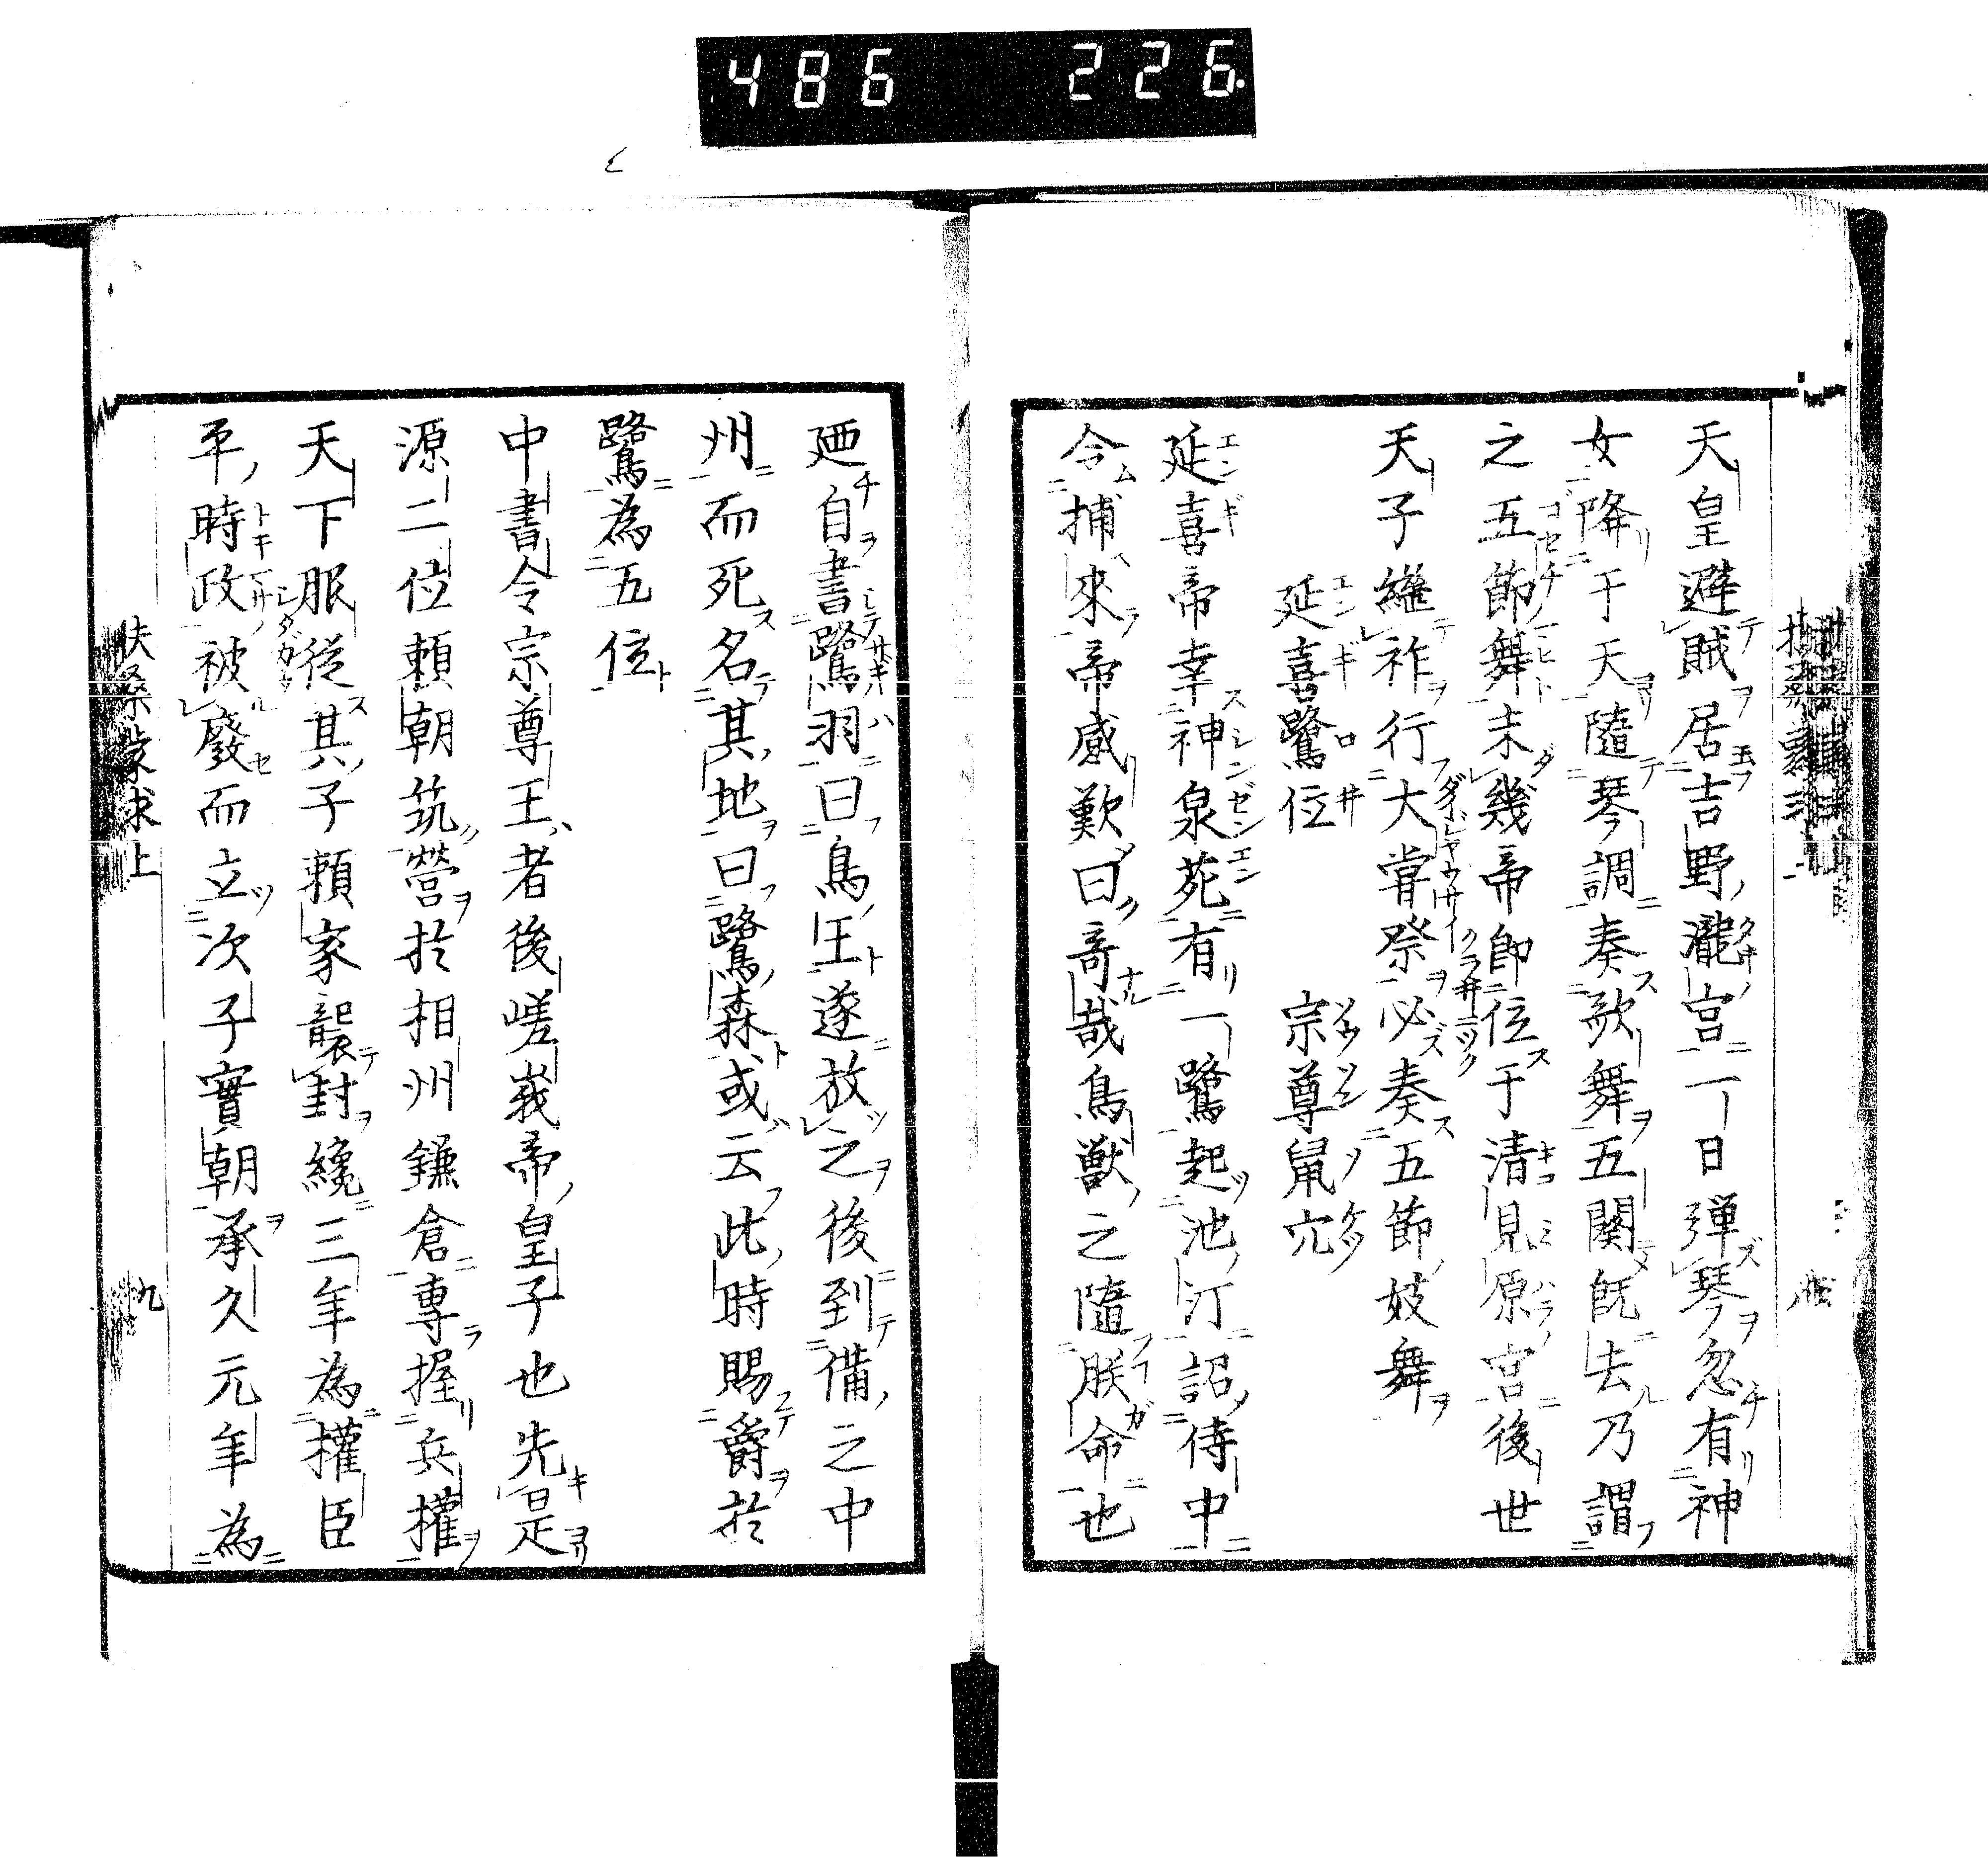 486 226.
天皇避賊居吉野瀧宮一日弾琴忽有神
女降于天隨琴調奏歌舞五闋既去乃謂
之五節舞未幾帝即位于清見原宮後世
天子繼祚行大嘗祭必奏五節妓舞
延喜鷺位 宗尊鼠穴
延喜帝幸神泉苑有一鷺起池汀詔侍中
令捕來帝感歎曰奇哉鳥獸之隨朕命也
廼自書鷺羽曰鳥王遂放之後到備之中
州而死名其地曰鷺森或云此時賜爵於
鷺為五位
中書令宗尊王者後嵯峩帝皇子也先是
源二位頼朝筑營於相州鎌倉専握兵權
天下服從其子頼家襲封纔三年為權臣
平時政被廢而立次子實朝承久元年為
扶桑蒙求上 九